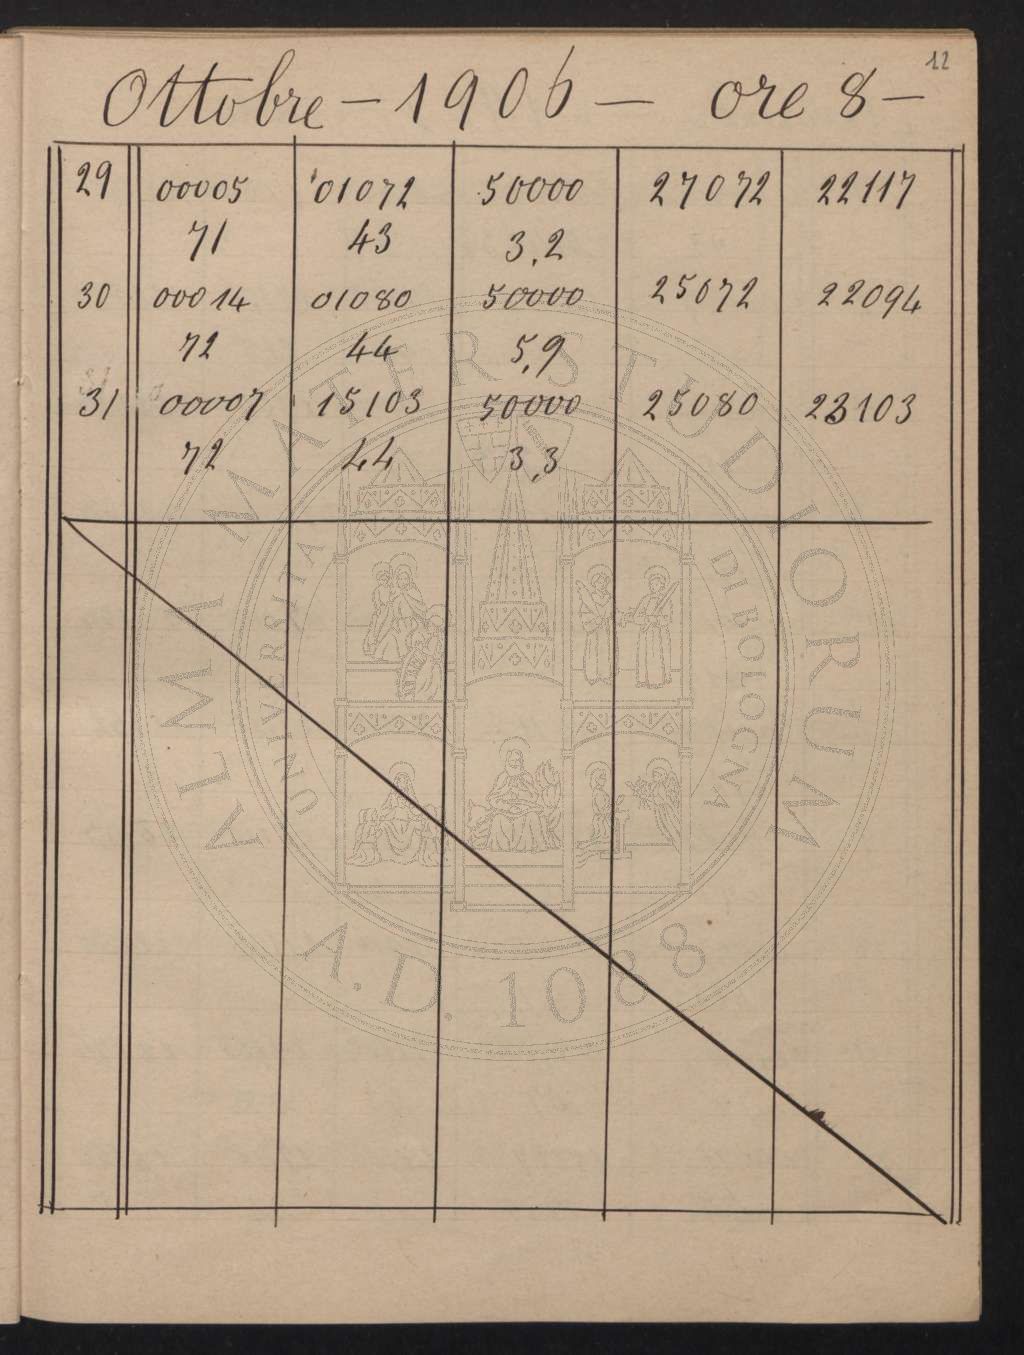 12
Ottobre - 1906 - ore 8 -
29 00005 01072 50000 27072 22117
71 43 3,2
30 00014 01080 50000 25072 22094
72 44 5,9
31 00007 15103 50000 25080 23103
72 44 3,3
ALMA MATER STUDIORUM
UNIVERSITA DI BOLOGNA
A.D. 1088